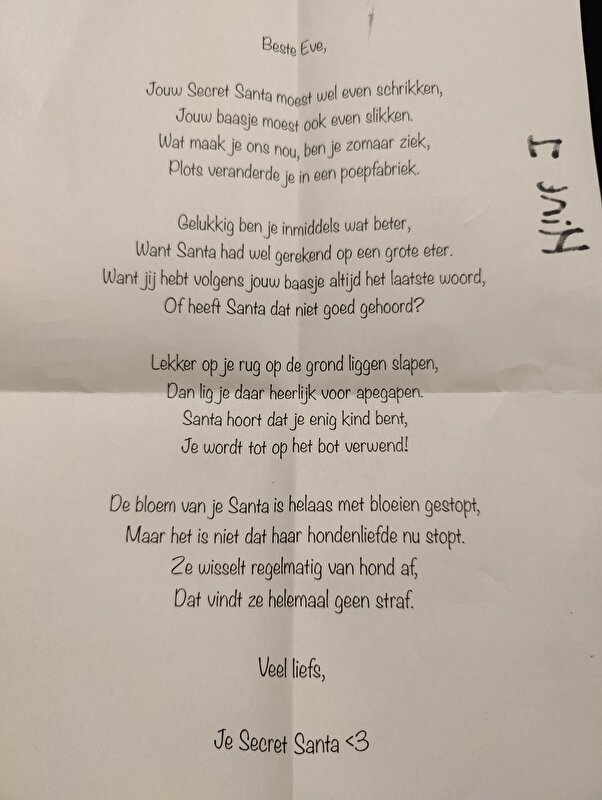 Beste Eve,
Jouw Secret Santa moest wel even schrikken,
Jouw baasje moest ook even slikken.
Wat maak je ons nou, ben je zomaar ziek,
Plots veranderde je in een poepfabriek.
Gelukkig ben je inmiddels wat beter,
Want Santa had wel gerekend op een grote eter.
Want jij hebt volgens jouw baasje altijd het laatste woord,
Of heeft Santa dat niet goed gehoord?
Lekker op je rug op de grond liggen slapen,
Dan lig je daar heerlijk voor apegapen.
Santa hoort dat je enig kind bent,
Je wordt tot op het bot verwend!
De bloem van je Santa is helaas met bloeien gestopt,
Maar het is niet dat haar hondenliefde nu stopt.
Ze wisselt regelmatig van hond af,
Dat vindt ze helemaal geen straf.
Veel liefs,
Je Secret Santa <3